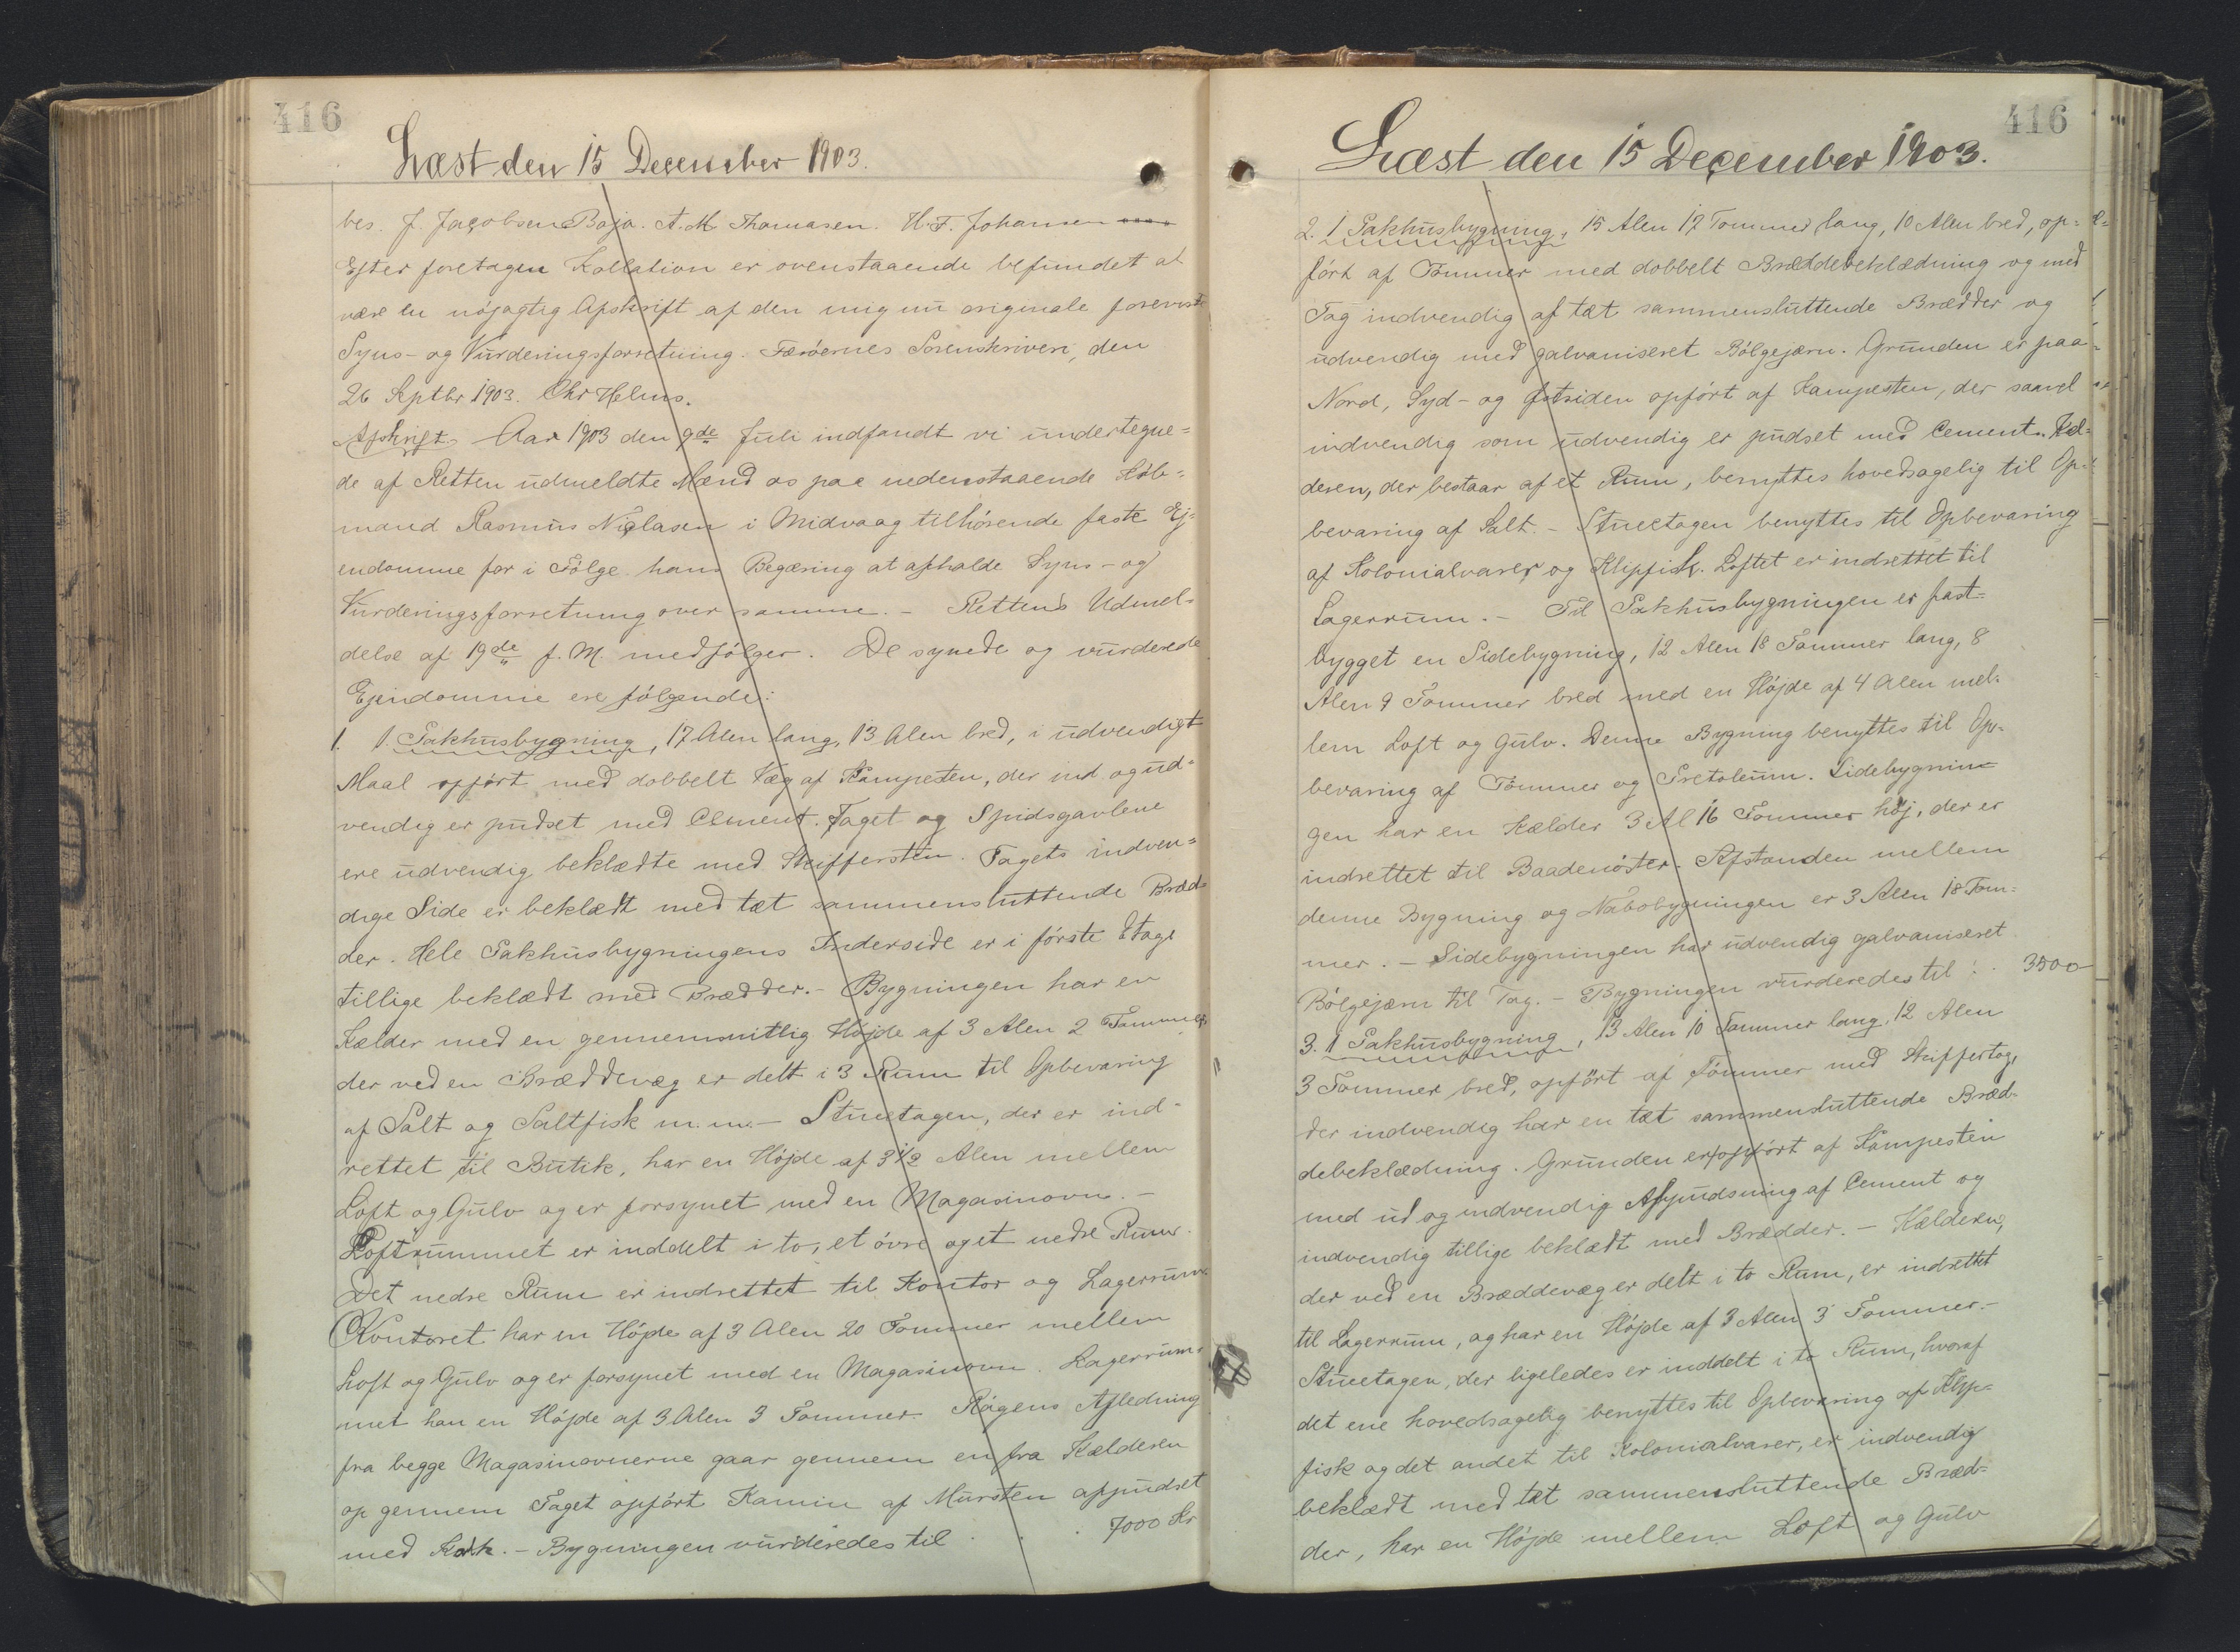 416
Læst den 15 December 1903.
bes. J. Jacobsen Baja. A. M. Thomasen. H. F. Johansen
Efter foretagen Kollation er ovenstaaende befundet at
være en nöjagtig Afskrift af den mig nu originale foreviste
Syns- og Vurderingsforretning. Færöernes Sorenskriveri, den
26 Septbr 1903. Chr Helms.
Afskrift. Aar 1903 den 9de Juli indfandt vi undertegne=
de af Retten udmeldte Mænd os paa nedenstaaende Köb=
mand Rasmus Niclasen i Midvaag tilhörende faste Ej=
endomme for i Fölge hans Begæring at afholde Syns- og
Vurderingsforretning over samme. - Rettens Udmel-
delse af 19de f. M. medfölger. De synede og vurderede
Ejendomme ere fölgende:
1. 1 Pakhusbygning, 17 Alen lang, 13 Alen bred, i udvendigt
Maal opfört med dobbelt Væg af Kampesten, der ind og ud=
vendig er pudset med Cement. Taget og Spidsgavlene
ere udvendig beklædte med Skiffersten. Tagets indven=
dige Side er beklædt med tæt sammensluttende Bræd-
der. Hele Pakhusbygningens Inderside er i förste Etage
tillige beklædt med Brædder. - Bygningen har en
Kælder med en gennemsnitlig Höjde af 3 Alen 2 Tommer,
der ved en Bræddevæg er delt i 3 Rum til Opbevaring
af Salt og Saltfisk m.m. - Stueetagen, der er ind-
rettet til Butik, har en Höjde af 3 1/2 Alen mellem
Loft og Gulv og er forsynet med en Magasinovn. -
Loftrummet er inddelt i to, et övre og et nedre Rum.
Det nedre Rum er indrettet til Kontor og Lagerrum.
Kontoret har en Höjde af 3 Alen 20 Tommer mellem
Loft og Gulv og er forsynet med en Magasinovn. Lagerrum-
met har en Höjde af 3 Alen 3 Tommer. Rögens Afledning
fra begge Magasinovnerne gaar gennem en fra Kælderen
op gennem Taget opfört Kamin af Mursten afpudset
med Kalk. - Bygningen vurderedes til . . 7000 Kr
416
Læst den 15 December 1903.
2. 1 Pakhusbygning, 15 Alen 17 Tommer lang, 10 Alen bred, op=
fört af Tömmer med dobbelt Bræddebeklædning og med
Tag indvendig af tæt sammensluttende Brædder og
udvendig med galvaniseret Bölgejærn. Grunden er paa
Nord, Syd- og Østsiden opfört af Kampesten, der saavel
indvendig som udvendig er pudset med Cement. Kæl=
deren, der bestaar af et Rum, benyttes hovedsagelig til Op=
bevaring af Salt. - Stueetagen benyttes til Opbevaring
af Kolonialvarer og Klipfisk. Loftet er indrettet til
Lagerrum. - Til Pakhusbygningen er fast=
bygget en Sidebygning, 12 Alen 18 Tommer lang, 8
Alen 9 Tommer bred med en Höjde af 4 Alen mel-
lem Loft og Gulv. Denne Bygning benyttes til Op-
bevaring af Tömmer og Pretoleum. Sidebygnin-
gen har en Kælder 3 Al 16 Tommer höj, der er
indrettet til Baadenöster. Afstanden mellem
denne Bygning og Nabobygningen er 3 Alen 18 Tom=
mer. - Sidebygningen har udvendig galvaniseret
Bölgejærn til Tag. - Bygningen vurderedes til . . 3500-
3. 1 Pakhusbygning, 13 Alen 10 Tommer lang, 12 Alen
3 Tommer bred, opfört af Tömmer med Skiffertag,
der indvendig har en tæt sammensluttende Bræd-
debeklædning. Grunden er opfört af Kampesten
med ud og indvendig Afpudsning af Cement og
indvendig tillige beklædt med Brædder. - Kælderen,
der ved en Bræddevæg er delt i to Rum, er indrettet
til Lagerrum, og har en Höjde af 3 Alen 3 Tommer. -
Stueetagen, der ligeledes er inddelt i to Rum, hvoraf
det ene hovedsagelig benyttes til Opbevaring af Klip=
fisk og det andet til Kolonialvarer, er indvendig
beklædt med tæt sammensluttende Bræd=
der, har en Höjde mellem Loft og Gulv